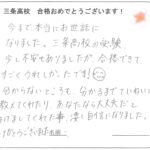 三条高校 合格おめでとうございます！
今まで本当にお世話に
なりました。三条高校の受験、
少し不安もありましたが、合格できて
すごくうれしかったです！
分からないところも、分かるまでていねいに
教えてくれたり、あなたなら大丈夫だと
してくれた事、凄く自信になりました。
ありがとうございました